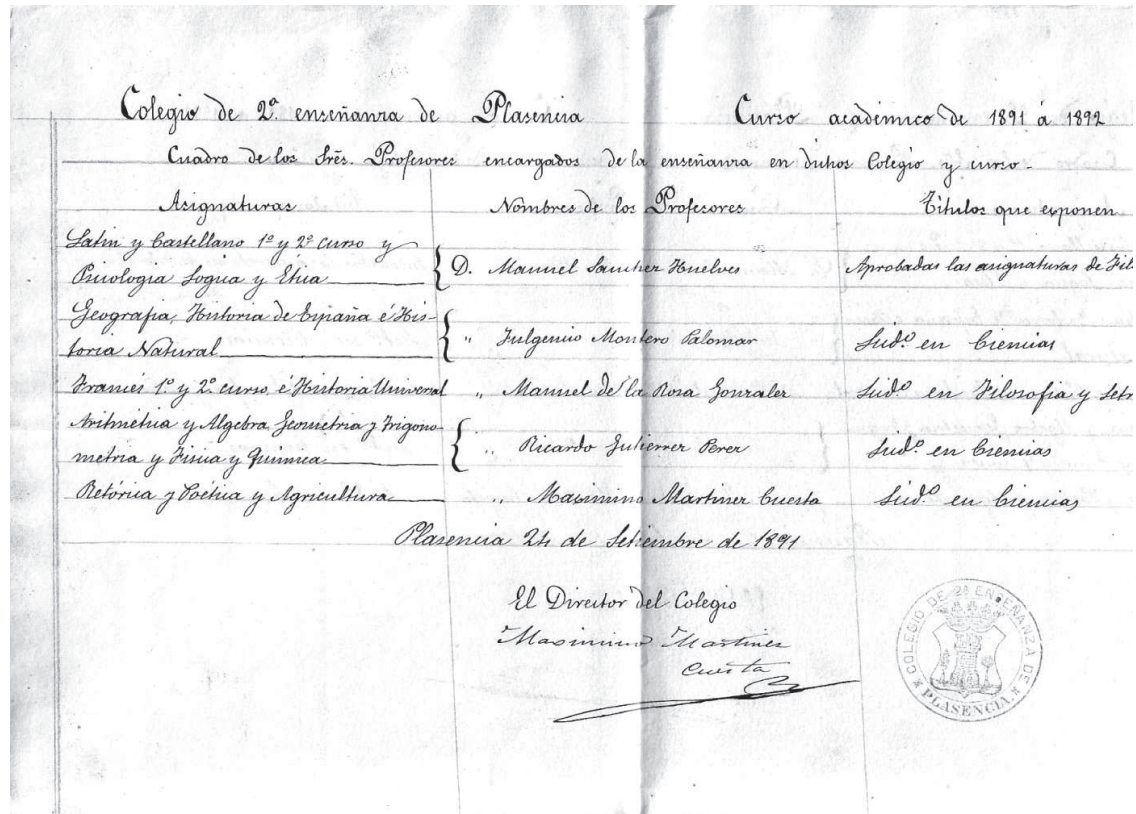 Colegio de 2ª enseñanza de Plasencia Curso académico de 1891 á 1892
Cuadro de los Srēs. Profesores encargados de la enseñanza en dichos Colegio y curso.
Asignaturas Nombres de los Profesores Titulos que exponen
Latin y Castellano 1º y 2º curso y
Psicologia Logica y Etica D. Manuel Sanchez Huelves Aprobadas las asignaturas de Fil
Geografia, Historia de España é His-
toria Natural " Fulgencio Montero Palomar Licdº en Ciencias
Francés 1º y 2º curso, é Historia Universal " Manuel de la Rosa Gonzalez Licdº en Filosofia y Letr
Aritmética y Algebra, Geometria y Trigono-
metria y Fisica y Quimica " Ricardo Gutierrez Perez Licdº en Ciencias
Retórica y Poética y Agricultura " Maximino Martinez Cuesta Licdº en Ciencias
Plasencia 24 de Setiembre de 1891
El Director del Colegio
Maximino Martinez
Cuesta
COLEGIO DE 2ª ENSEÑANZA DE
PLASENCIA